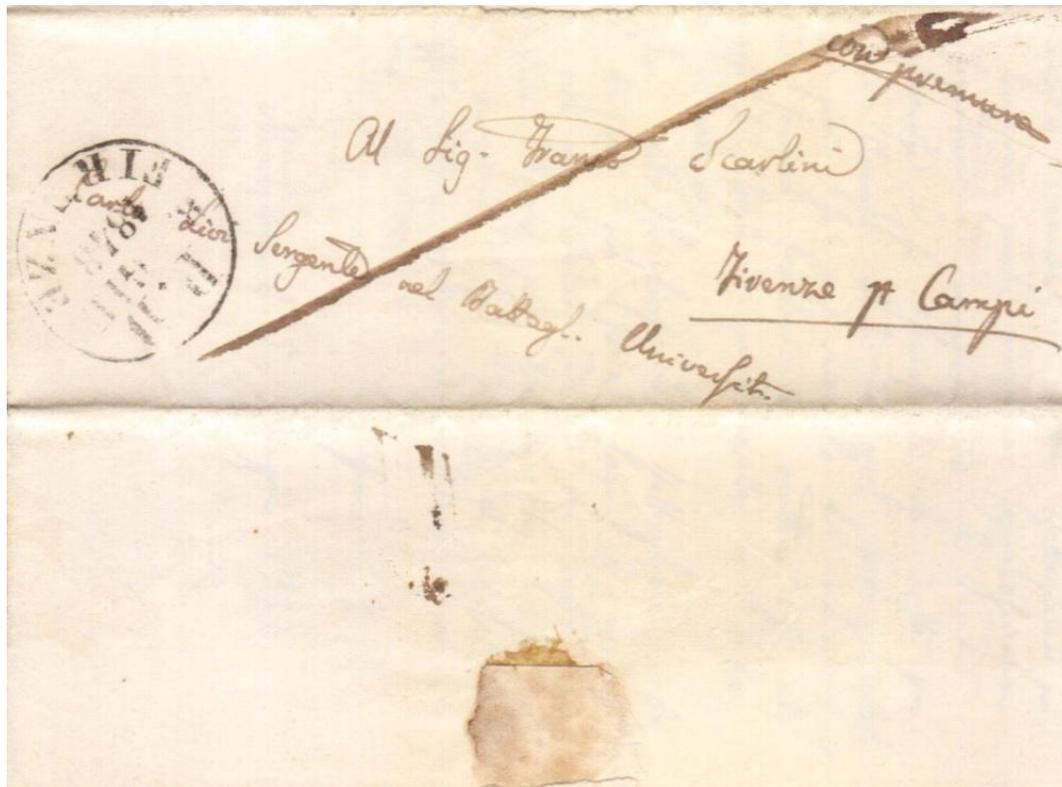 con premura
Al Sig. Franco Scarlini
Sergente nel Battagl. Universit.
Firenze p Campi
FIRENZE